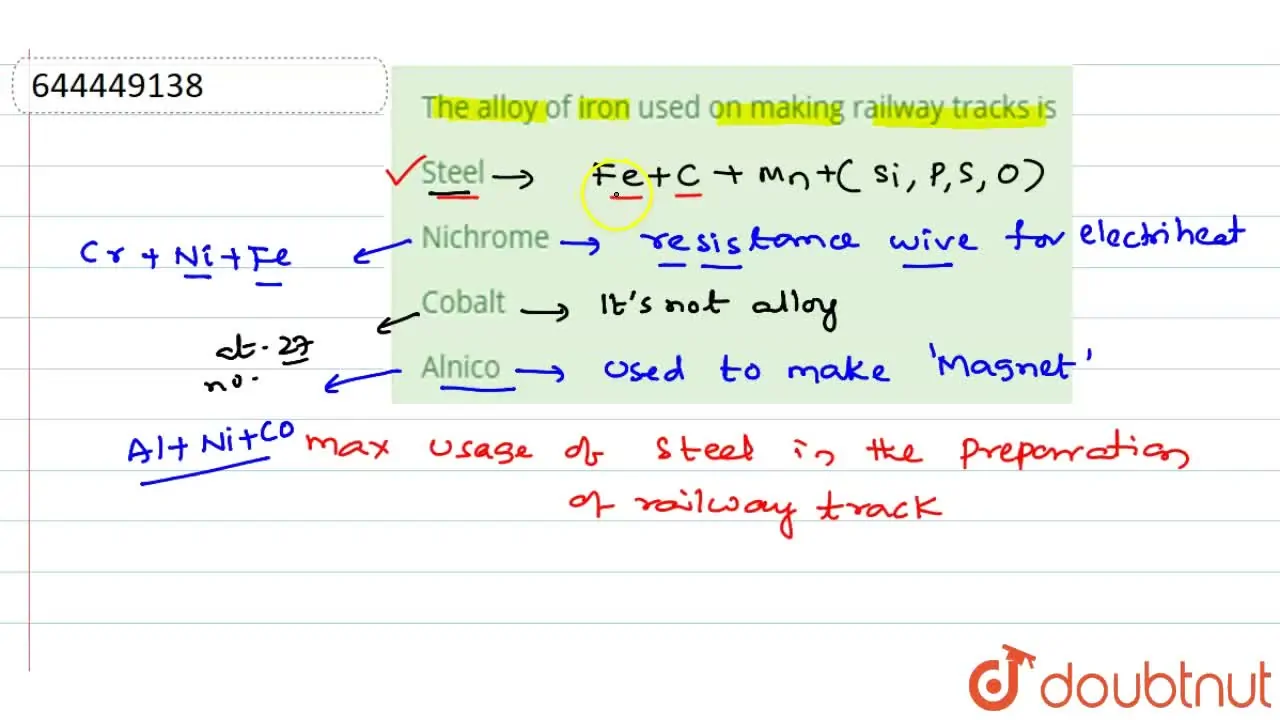 644449138
The alloy of iron used on making railway tracks is
Steel → Fe + C + Mn + ( Si, P, S, O )
Cr + Ni + Fe ← Nichrome → resistance wire for electriheat
Cobalt → It's not alloy
at. no. 27
Alnico → used to make 'Magnet'
Al + Ni + CO
max usage of steel in the preparation
of railway track
doubtnut